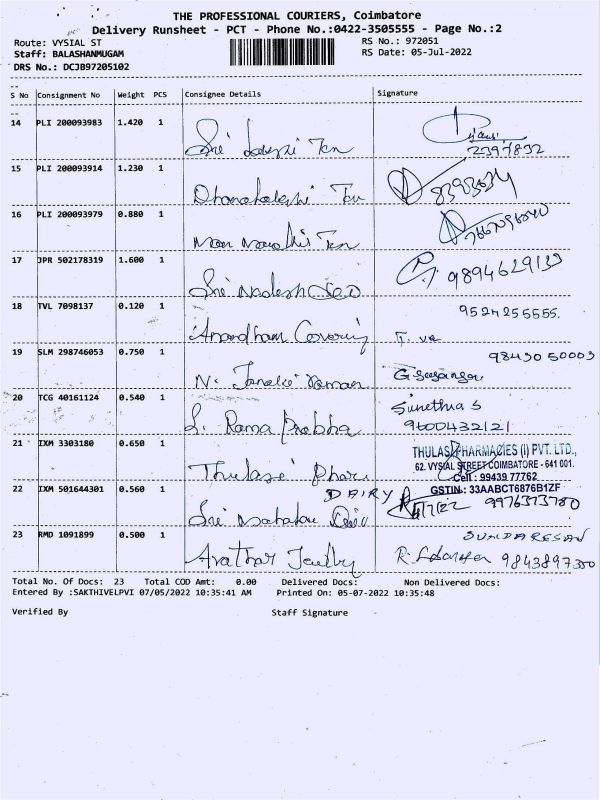 THE PROFESSIONAL COURIERS, Coimbatore
Delivery Runsheet - PCT - Phone No.:0422-3505555 - Page No.:2
Route: VYSIAL ST RS No.: 972051
Staff: BALASHANMUGAM RS Date: 05-Jul-2022
DRS No.: DCJB97205102
S No Consignment No Weight PCS Consignee Details Signature
14 PLI 200093983 1.420 1
Sri 2397832
15 PLI 200093914 1.230 1
16 PLI 200093979 0.880 1
17 JPR 502178319 1.600 1
Sri 9894629139
18 TVL 7098137 0.120 1 9524255555.
Anandham Covering
19 SLM 298746053 0.750 1 9843050003
N. Janaki Raman
20 TCG 40161124 0.540 1 Sunethra S
S. Rama Prabha 9600432121
21 IXM 3303180 0.650 1 THULASI PHARMACIES (I) PVT. LTD.,
62. VYSIAL STREET COIMBATORE - 641 001.
Thulasi Cell : 99439 77762
22 IXM 501644301 0.560 1 DAIRY GSTIN: 33AABCT6876B1ZF
Sri 9976373780
23 RMD 1091899 0.500 1 SUNDARESAN
9843897350
Total No. Of Docs: 23 Total COD Amt: 0.00 Delivered Docs: Non Delivered Docs:
Entered By :SAKTHIVELPVI 07/05/2022 10:35:41 AM Printed On: 05-07-2022 10:35:48
Verified By Staff Signature